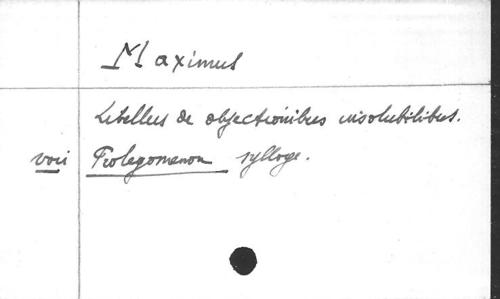 Maximus
Libellus de objectionibus insolubilibus.
voir Prolegomenon sylloge.